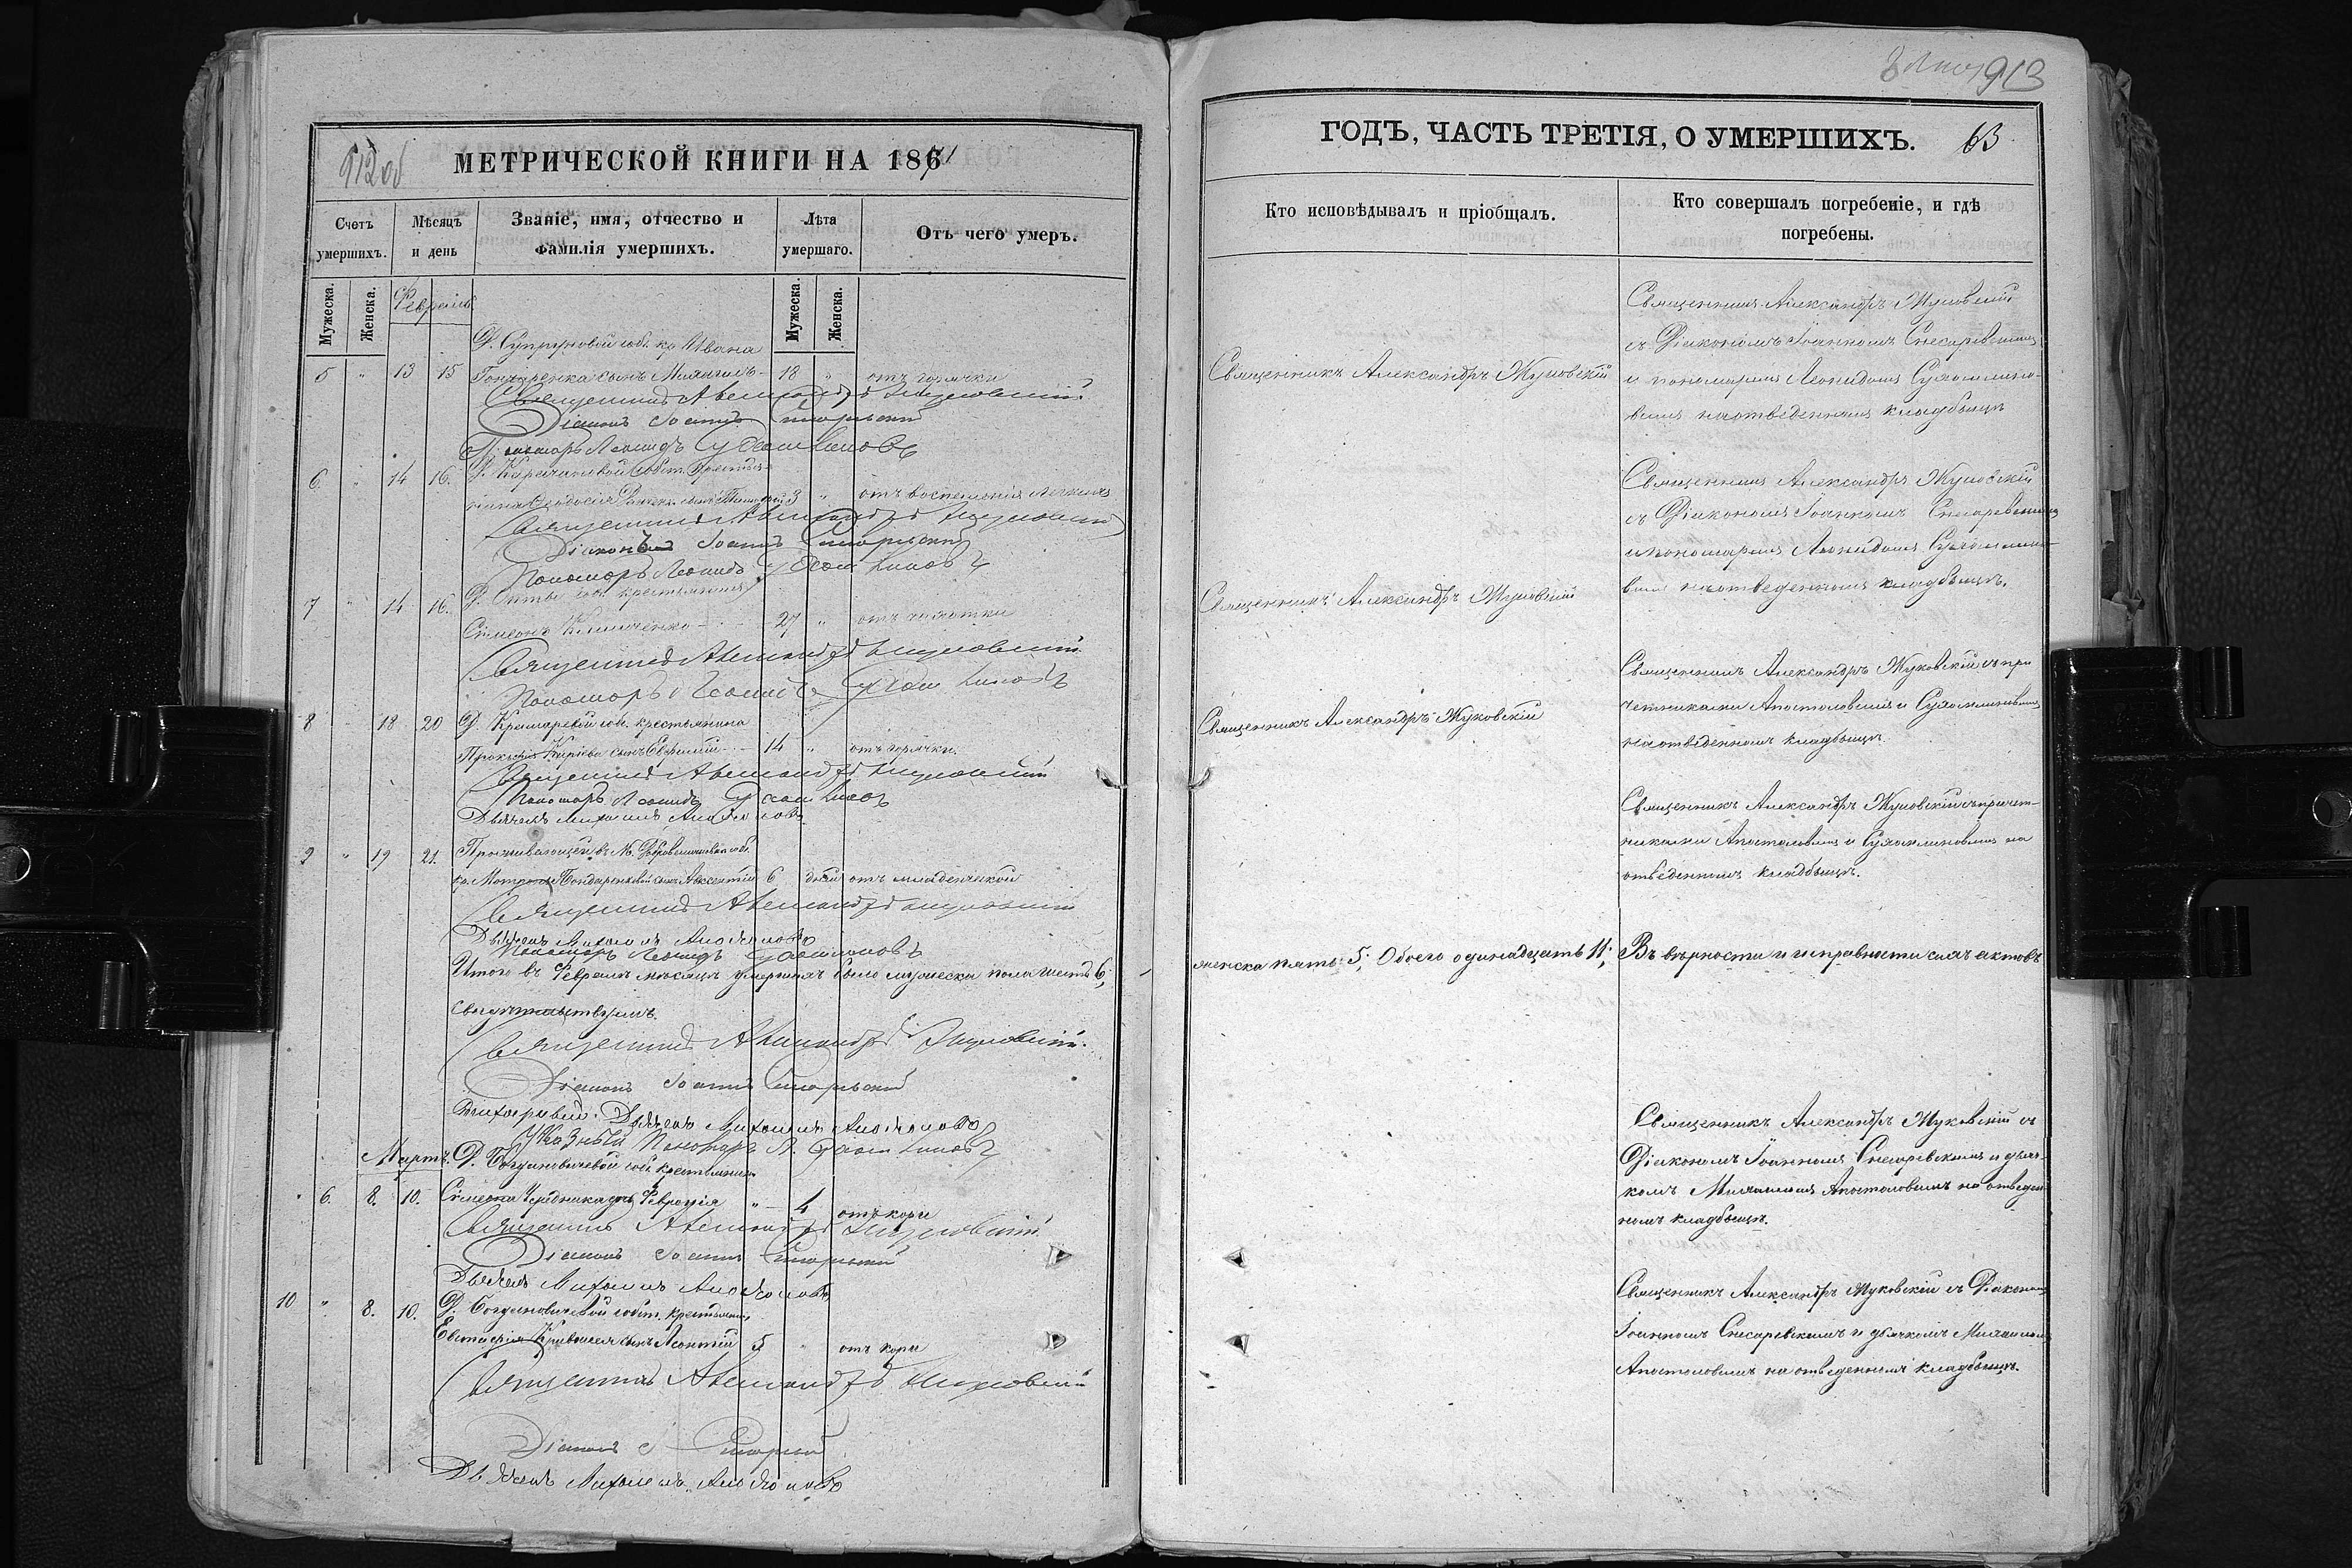 912об
МЕТРИЧЕСКОЙ КНИГИ НА 1871
Счетъ умершихъ.
Мѣсяцъ и день
Званіе, имя, отчество и фамилія умершихъ.
Лѣта умершаго.
Отъ чего умеръ.
Мужеска.
Женска.
Февраль
Мужеска.
Женска.
собс. кр. Ивана
5 " 13 15 Гончаренка сынъ Михаилъ - 18 " отъ горячки
Священникъ Александръ Жуковскій
Діаконъ Іоаннъ
Пономарь Леонидъ Сухомлиновъ
6. " 14 16.
3 " отъ воспаленія легкихъ
Священникъ Александръ Жуковскій
Діаконъ Іоаннъ
Пономарь Леонидъ Сухомлиновъ
7 " 14 16. соб. крестьянинъ
Симеонъ Клименко - 27 " отъ чахотки
Священникъ Александръ Жуковскій
Пономарь Леонидъ Сухомлиновъ
8 18 20 Д. соб. крестьянина
сынъ Евфимій - 14 " отъ горячки.
Священникъ Александръ Жуковскій
Пономарь Леонидъ Сухомлиновъ
Дьячекъ Михаилъ Апостоловъ
9 " 19 21. Проживающей въ М.
кр. Матроны Бондаренковой сынъ Авксентій 6 дней отъ младенческой
Священникъ Александръ Жуковскій
Дьячекъ Михаилъ Апостоловъ
Пономарь Леонидъ Сухомлиновъ
Итого въ Февралѣ мѣсяцѣ умершихъ было мужеска пола шесть 6;
свидѣтельствуемъ.
Священникъ Александръ Жуковскій.
Діаконъ Іоаннъ
Дьячекъ Михаилъ Апостоловъ
Указный Пономарь Л. Сухомлиновъ
Мартъ. Д. Богдановичевой соб. крестьянина
6. 8. 10. Симеона Чередника дочь Февронія " - 4 отъ кори
Священникъ Александръ Жуковскій
Діаконъ Іоаннъ
Дьячекъ Михаилъ Апостоловъ
10 " 8. 10. Д. Богдановичевой собст. крестьянина
сынъ Леонтій 5 " отъ кори
Священникъ Александръ Жуковскій
Діаконъ
Дьячекъ Михаилъ Апостоловъ
913
ГОДЪ, ЧАСТЬ ТРЕТІЯ, О УМЕРШИХЪ. 63
Кто исповѣдывалъ и пріобщалъ.
Кто совершалъ погребеніе, и гдѣ погребены.
Священникъ Александръ Жуковскій
Священникъ Александръ Жуковскій
съ Діакономъ Іоанномъ Снесаревскимъ
и пономаремъ Леонидомъ Сухомлино-
вымъ на отведенномъ кладбищѣ
Священникъ Александръ Жуковскій
съ Діакономъ Іоанномъ Снесаревскимъ
и пономаремъ Леонидомъ Сухомлино-
вымъ на отведенномъ кладбищѣ.
Священникъ Александръ Жуковскій
Священникъ Александръ Жуковскій съ при
четниками Апостоловымъ и Сухомлиновымъ
на отведенномъ кладбищѣ.
Священникъ Александръ Жуковскій
Священникъ Александръ Жуковскій съ причет-
никами Апостоловымъ и Сухомлиновымъ на
отведенномъ кладбищѣ.
женска пять: 5; Обоего одинадцать 11; Въ вѣрности и исправности сихъ актовъ
Священникъ Александръ Жуковскій съ
Діакономъ Іоанномъ Снесаревскимъ и дьяч-
комъ Михаиломъ Апостоловымъ на отведен
номъ кладбищѣ.
Священникъ Александръ Жуковскій съ Діакономъ
Іоанномъ Снесаревскимъ и дьячкомъ Михаиломъ
Апостоловымъ на отведенномъ кладбищѣ.